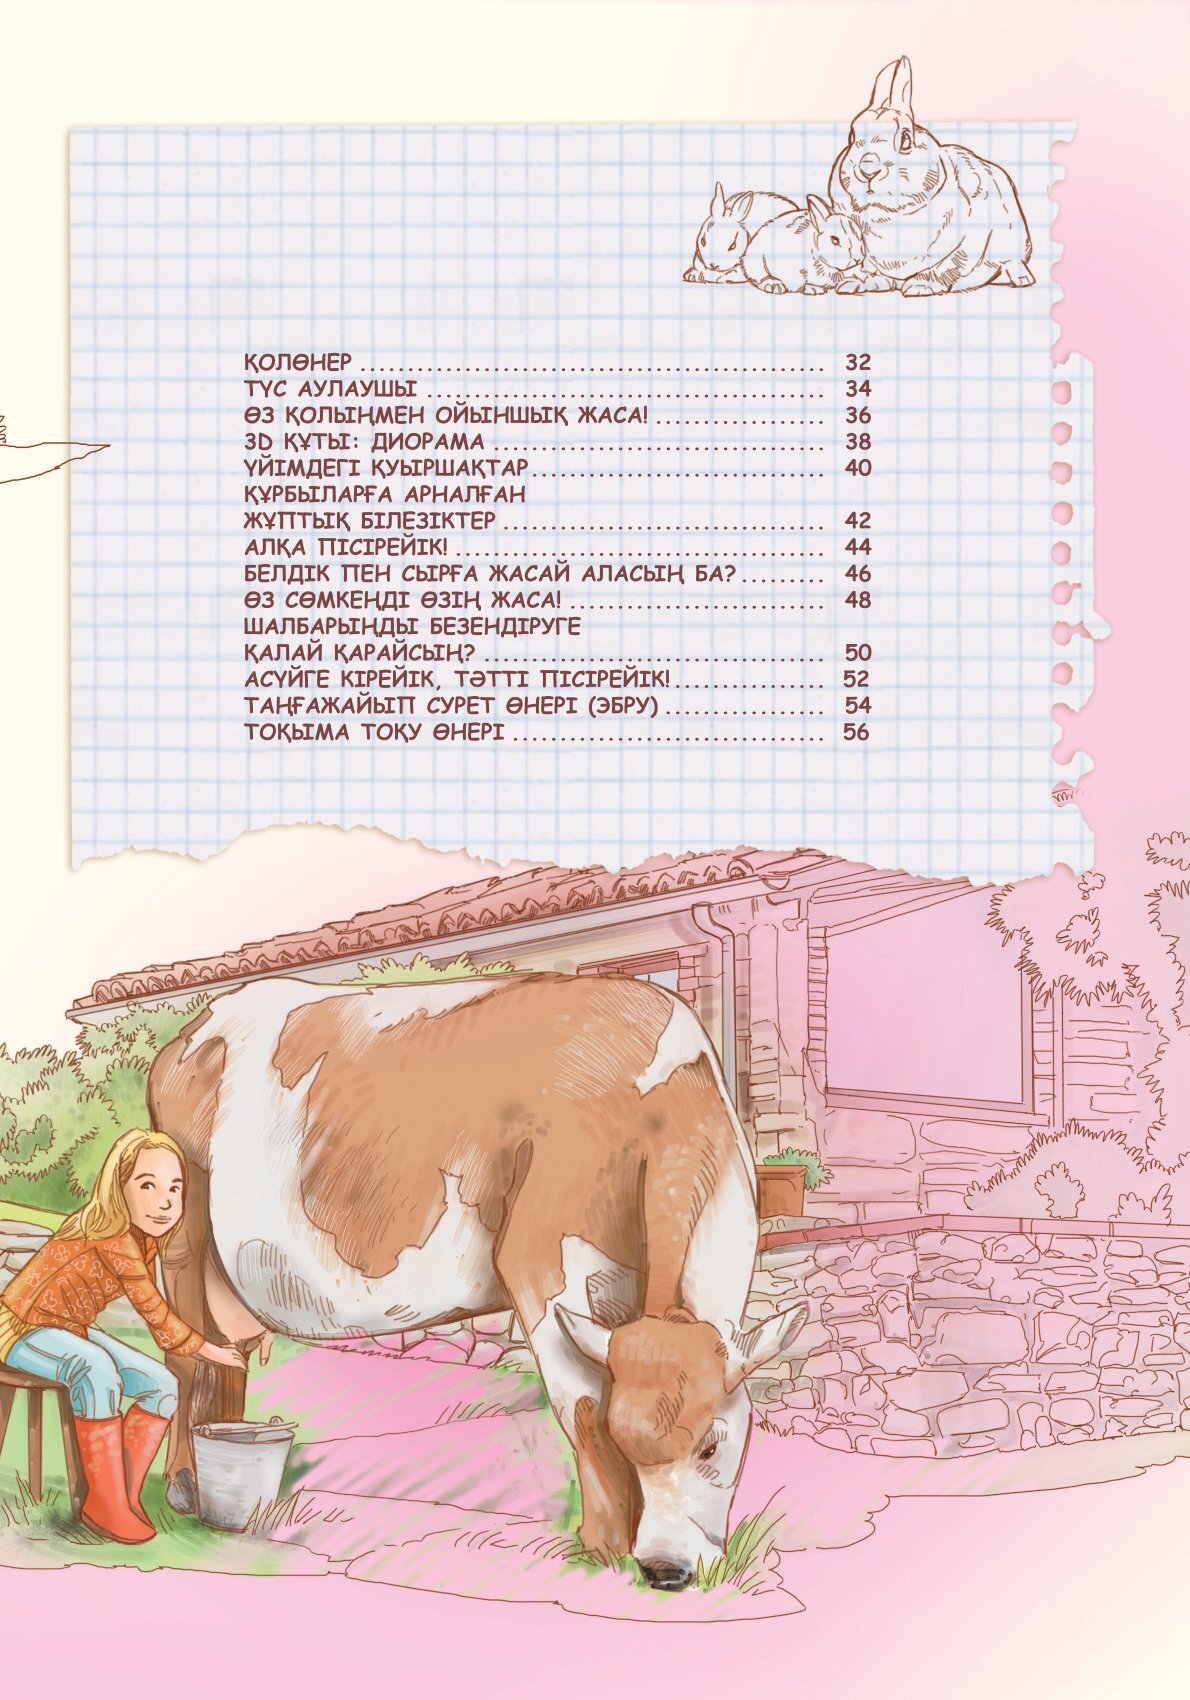 ҚОЛӨНЕР ................................................ 32
ТҮС АУЛАУШЫ ......................................... 34
ӨЗ ҚОЛЫҢМЕН ОЙЫНШЫҚ ЖАСА! .................. 36
3D ҚҰТЫ: ДИОРАМА .................................. 38
ҮЙІМДЕГІ ҚУЫРШАҚТАР .............................. 40
ҚҰРБЫЛАРҒА АРНАЛҒАН
ЖҰПТЫҚ БІЛЕЗІКТЕР ................................. 42
АЛҚА ПІСІРЕЙІК! ...................................... 44
БЕЛДІК ПЕН СЫРҒА ЖАСАЙ АЛАСЫҢ БА? ......... 46
ӨЗ СӨМКЕҢДІ ӨЗІҢ ЖАСА! .......................... 48
ШАЛБАРЫҢДЫ БЕЗЕНДІРУГЕ
ҚАЛАЙ ҚАРАЙСЫҢ? ................................... 50
АСҮЙГЕ КІРЕЙІК, ТӘТТІ ПІСІРЕЙІК! ................ 52
ТАҢҒАЖАЙЫП СУРЕТ ӨНЕРІ (ЭБРУ) ................. 54
ТОҚЫМА ТОҚУ ӨНЕРІ ................................ 56